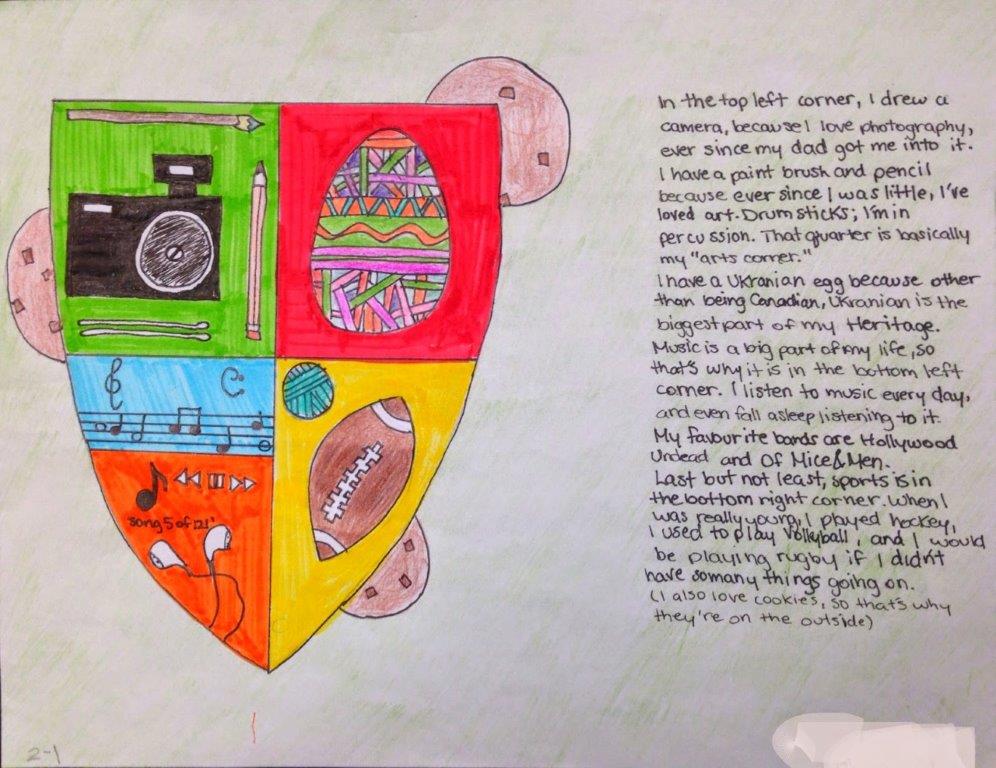 In the top left corner, I drew a
camera, because I love photography,
ever since my dad got me into it.
I have a paint brush and pencil
because ever since I was little, I've
loved art. Drum sticks; I'm in
percussion. That quarter is basically
my "arts corner."
I have a Ukranian egg because other
than being Canadian, Ukranian is the
biggest part of my Heritage.
Music is a big part of my life, so
that's why it is in the bottom left
corner. I listen to music every day,
and even fall asleep listening to it.
My favourite bands are Hollywood
Undead and Of Mice & Men.
Last but not least, sports is in
the bottom right corner. When I
was really young, I played hockey,
I used to play Volleyball, and I would
be playing rugby if I didn't
have so many things going on.
(I also love cookies, so that's why
they're on the outside)
"song 5 of 121"
2-1